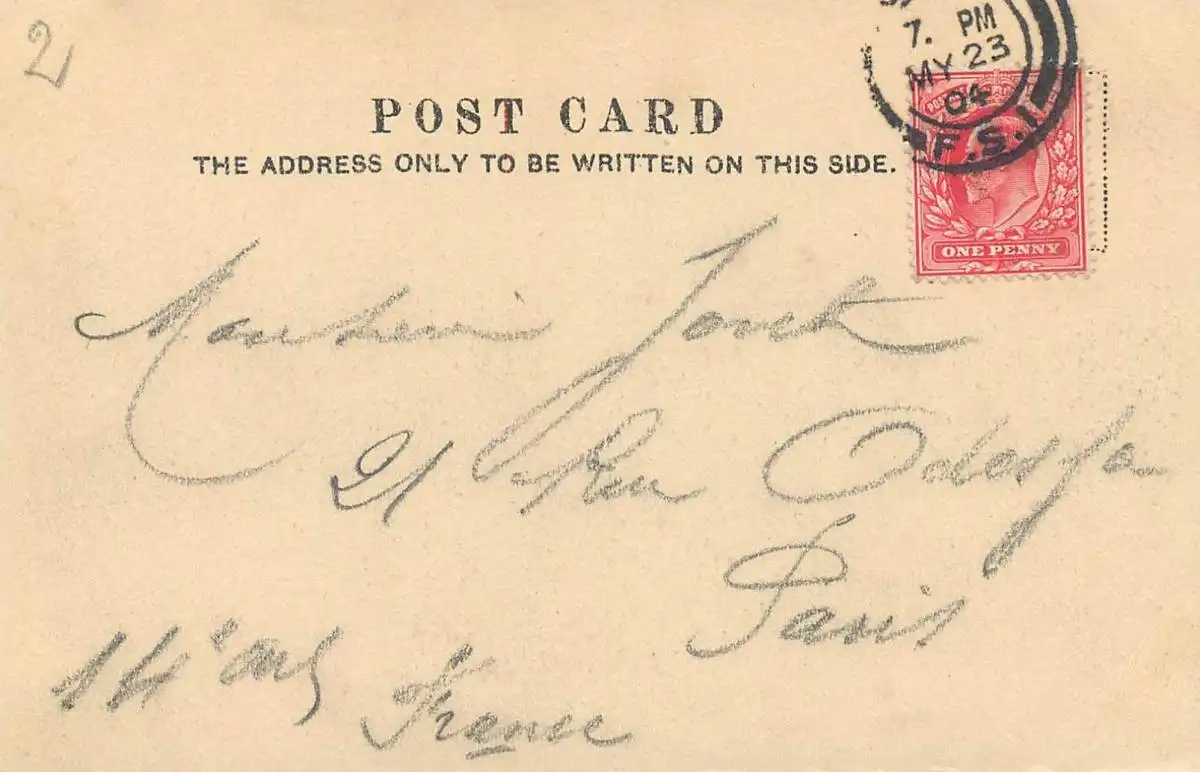 2
7. PM
MY 23
04
F.S.1
POST CARD
THE ADDRESS ONLY TO BE WRITTEN ON THIS SIDE.
ONE PENNY
21 Rue Odessa
Paris
14e
France